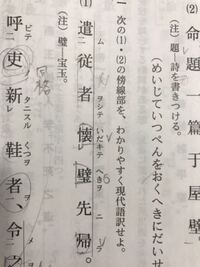 (2) 命題一篇于屋壁
(注) 題―詩を書きつける。
(めいじていっぺんをおくへきにだいせ
一 次の(1)・(2)の傍線部を、わかりやすく現代語訳せよ。
(注) 璧―宝玉。
(1) 遣従者懐璧先帰。
呼ビテ吏新タニスル鞋くつヲ者、令
同格